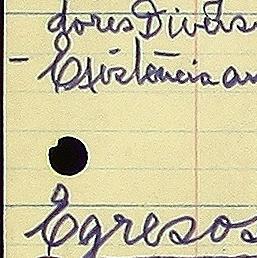 dores Divers
- Existencia an
Egresos